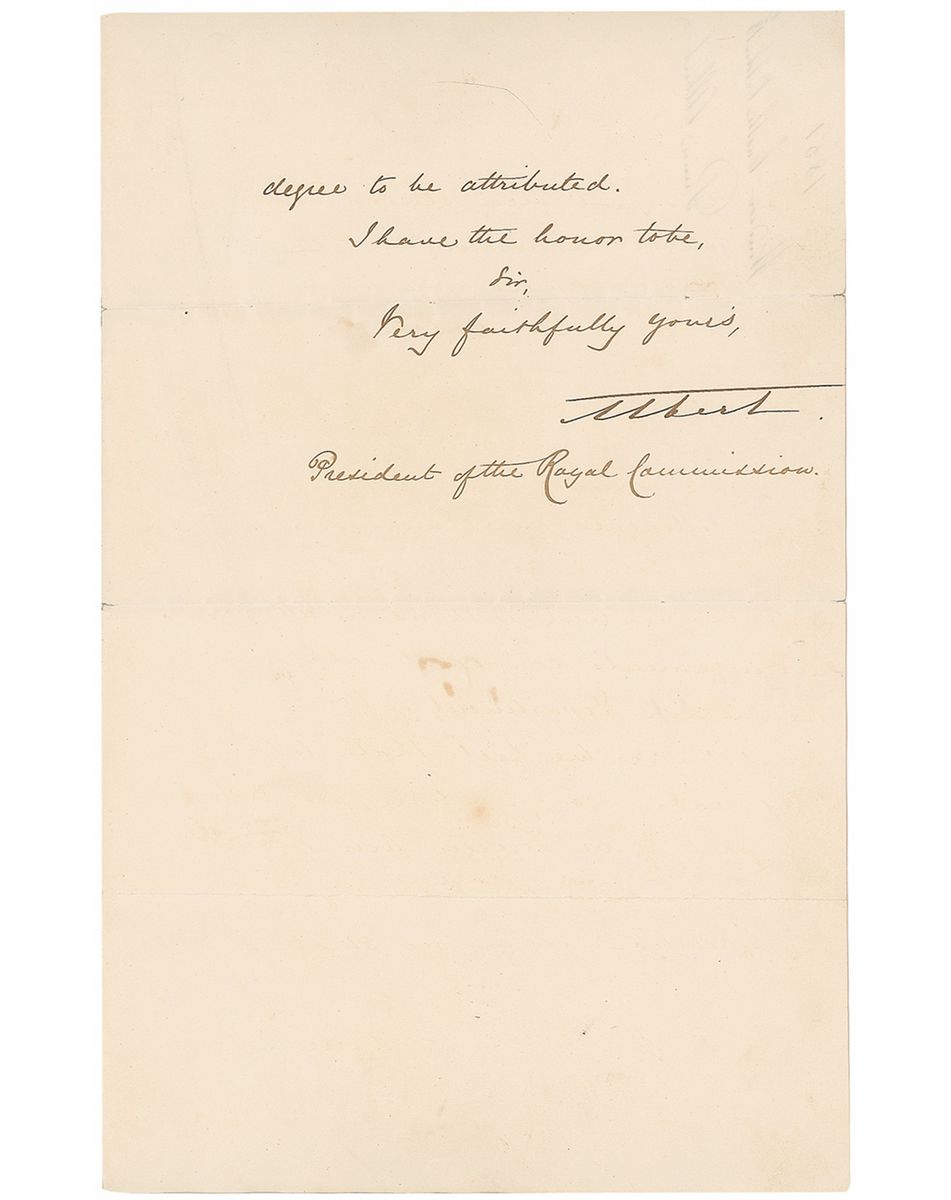 degree to be attributed.
I have the honor to be,
Sir,
Very faithfully yours,
Albert.
President of the Royal Commission.